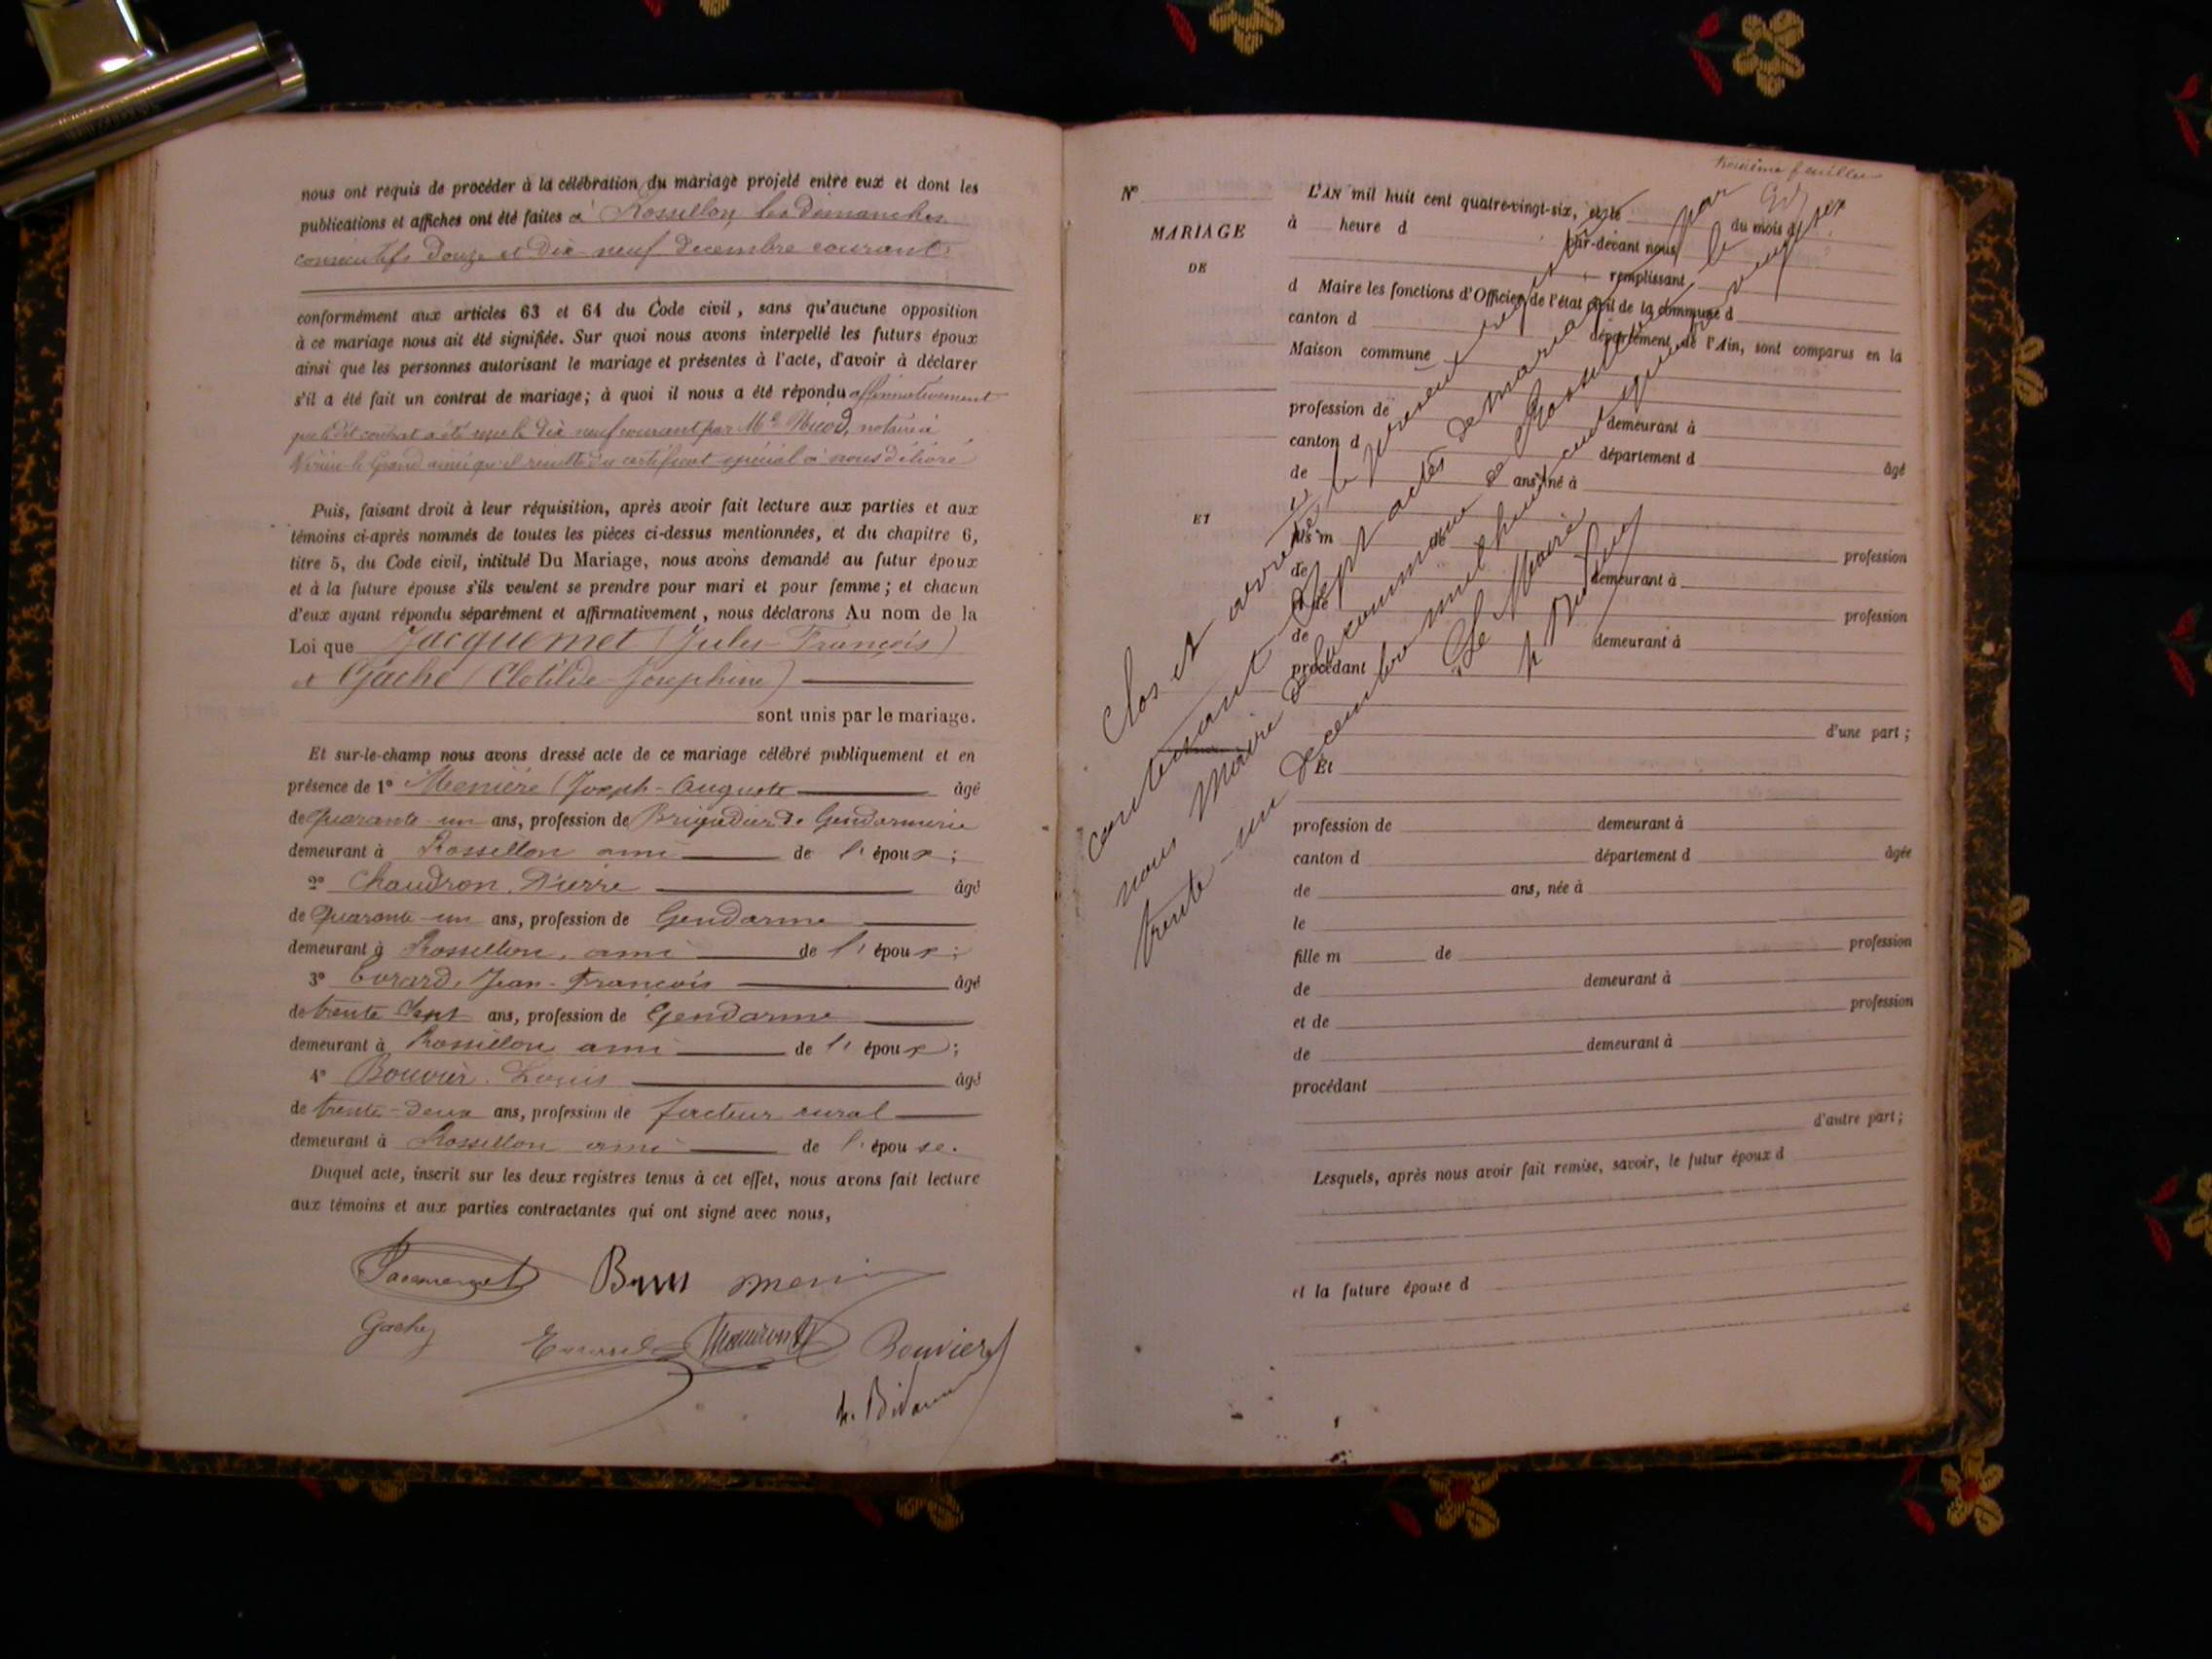 nous ont requis de procéder à la célébration du mariage projeté entre eux et dont les
publications et affiches ont été faites à Rossillon les dimanches
consécutifs Douze et Dix neuf Decembre courant
conformément aux articles 63 et 64 du Code civil, sans qu'aucune opposition
à ce mariage nous ait été signifiée. Sur quoi nous avons interpellé les futurs époux
ainsi que les personnes autorisant le mariage et présentes à l'acte, d'avoir à déclarer
s'il a été fait un contrat de mariage; à quoi il nous a été répondu affirmativement
que le dit contrat a été reçu le Dix neuf courant par Me Nicod, notaire à
Virieu-le-Grand ainsi qu'il resulte du certificat spécial à nous délivré
Puis, faisant droit à leur réquisition, après avoir fait lecture aux parties et aux
témoins ci-après nommés de toutes les pièces ci-dessus mentionnées, et du chapitre 6,
titre 5, du Code civil, intitulé Du Mariage, nous avons demandé au futur époux
et à la future épouse s'ils veulent se prendre pour mari et pour femme; et chacun
d'eux ayant répondu séparément et affirmativement, nous déclarons Au nom de la
Loi que Jacquemet (Jules-François)
et Gache (Clotilde-Josephine)
sont unis par le mariage.
Et sur-le-champ nous avons dressé acte de ce mariage célébré publiquement et en
présence de 1° Menière (Joseph-Auguste âgé
de Quarante-un ans, profession de Brigadier de Gendarmerie
demeurant à Rossillon ami de l'époux;
2° Chaudron, Pierre âgé
de Quarante-un ans, profession de Gendarme
demeurant à Rossillon, ami de l'époux;
3° Evrard, Jean-François âgé
de trente Sept ans, profession de Gendarme
demeurant à Rossillon ami de l'époux;
4° Bouvier, Louis âgé
de trente-deux ans, profession de facteur rural
demeurant à Rossillon ami de l'épouse.
Duquel acte, inscrit sur les deux registres tenus à cet effet, nous avons fait lecture
aux témoins et aux parties contractantes qui ont signé avec nous,
Jacquemet
Gache
Evrard
Bouvier
troisième feuillet
N°
MARIAGE
DE
ET
L'AN mil huit cent quatre-vingt-six, et le du mois d
à heure d par-devant nous
remplissant
d Maire les fonctions d'Officier de l'état civil de la commune d
canton d département de l'Ain, sont comparus en la
Maison commune
profession de demeurant à
canton d département d âgé
de ans, né à
le
fils m de profession
de demeurant à
et de profession
de demeurant à
procédant
d'une part;
Et
profession de demeurant à
canton d département d âgée
de ans, née à
le
fille m de profession
de demeurant à
et de profession
de demeurant à
procédant
d'autre part;
Lesquels, après nous avoir fait remise, savoir, le futur époux d
et la future épouse d
Clos et arrêté le présent registre
contenant Sept actes de mariage par
nous Maire de la commune de Rossillon le
trente-un Decembre mil huit cent quatre vingt six
Le Maire